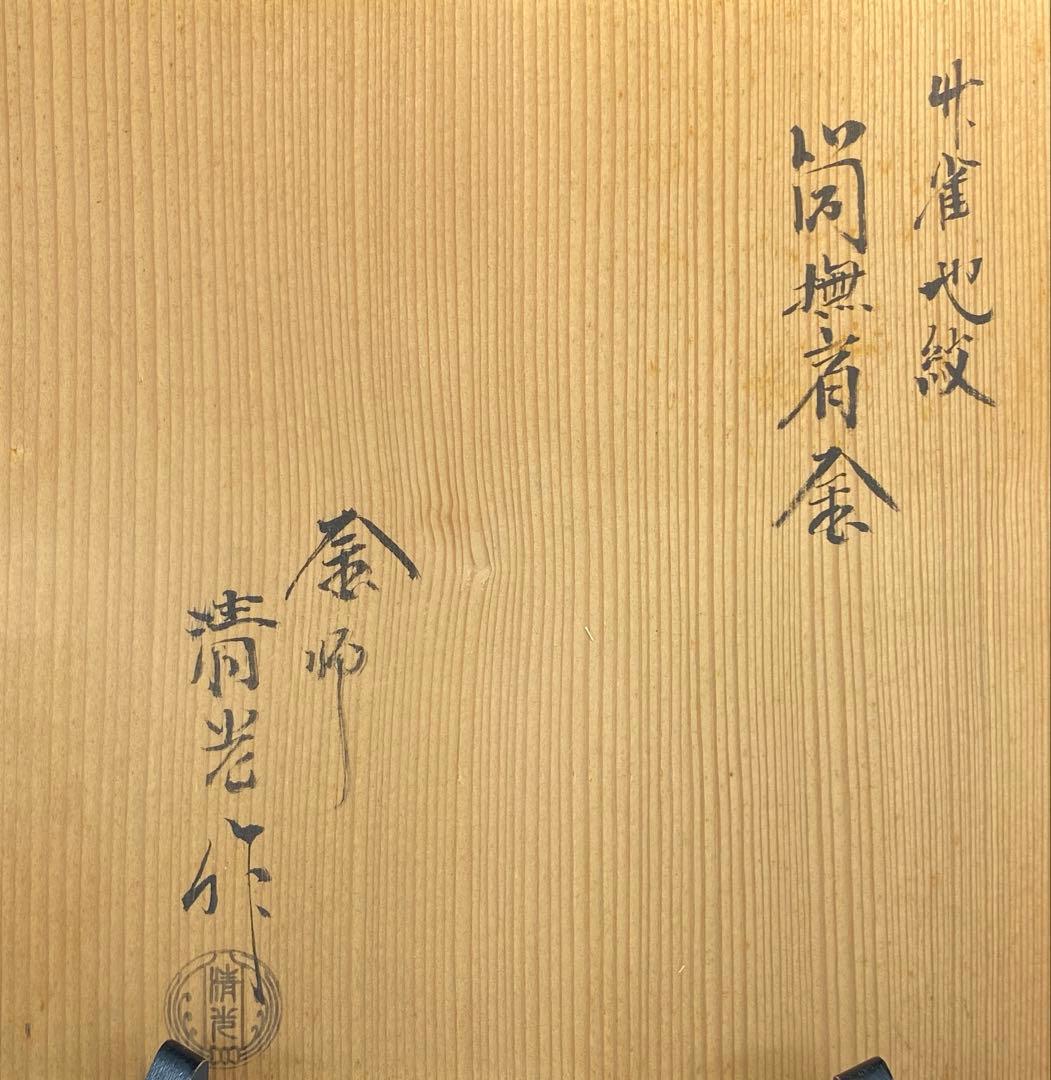 竹雀地紋
筒撫肩釜
釜師
清光作
清光